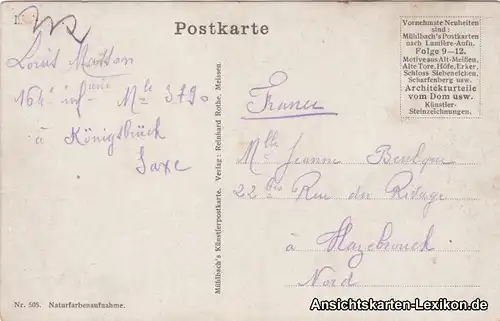 Postkarte
Louis
164e infterie Mle 3790
à Königsbrück
Saxe
France
Mlle Jeanne
22 bis Rue du Rivage
à Hazebrouck
Nord
Vornehmste Neuheiten
sind:
Mühlbach's Postkarten
nach Lumière-Aufn.
Folge 9-12.
Motive aus Alt-Meißen,
Alte Tore, Höfe, Erker,
Schloss Siebeneichen,
Scharfenberg usw.
Architekturteile
vom Dom usw.
Künstler-
Steinzeichnungen.
Mühlbach's Künstlerpostkarte. Verlag: Reinhard Rothe, Meissen.
Nr. 505. Naturfarbenaufnahme.
Ansichtskarten-Lexikon.de